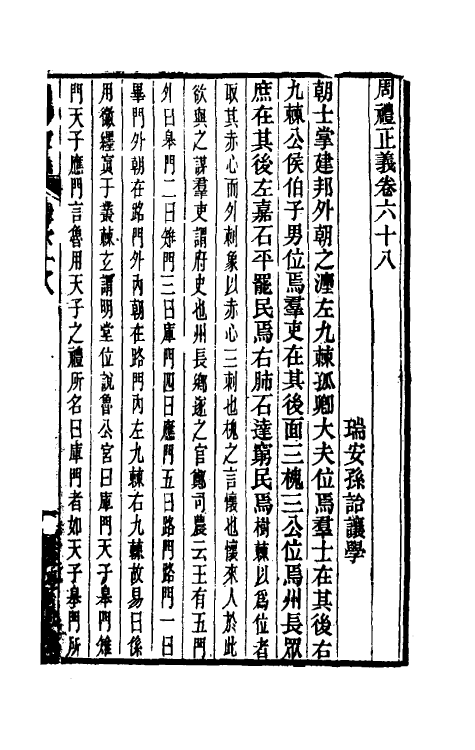 周禮正義卷六十八
瑞安孫詒讓學
朝士掌建邦外朝之灋左九棘孤卿大夫位焉羣士在其後右
九棘公侯伯子男位焉羣吏在其後面三槐三公位焉州長眾
庶在其後左嘉石平罷民焉右肺石達窮民焉樹棘以爲位者
取其赤心而外刺象以赤心三刺也槐之言懷也懷來人於此
欲與之謀羣吏謂府史也州長鄉遂之官鄭司農云王有五門
外曰皋門二曰雉門三曰庫門四曰應門五曰路門路門一曰
畢門外朝在路門外內朝在路門內左九棘右九棘故易曰係
用徽纆寘于叢棘玄謂明堂位說魯公宮曰庫門天子皋門雉
門天子應門言魯用天子之禮所名曰庫門者如天子皋門所